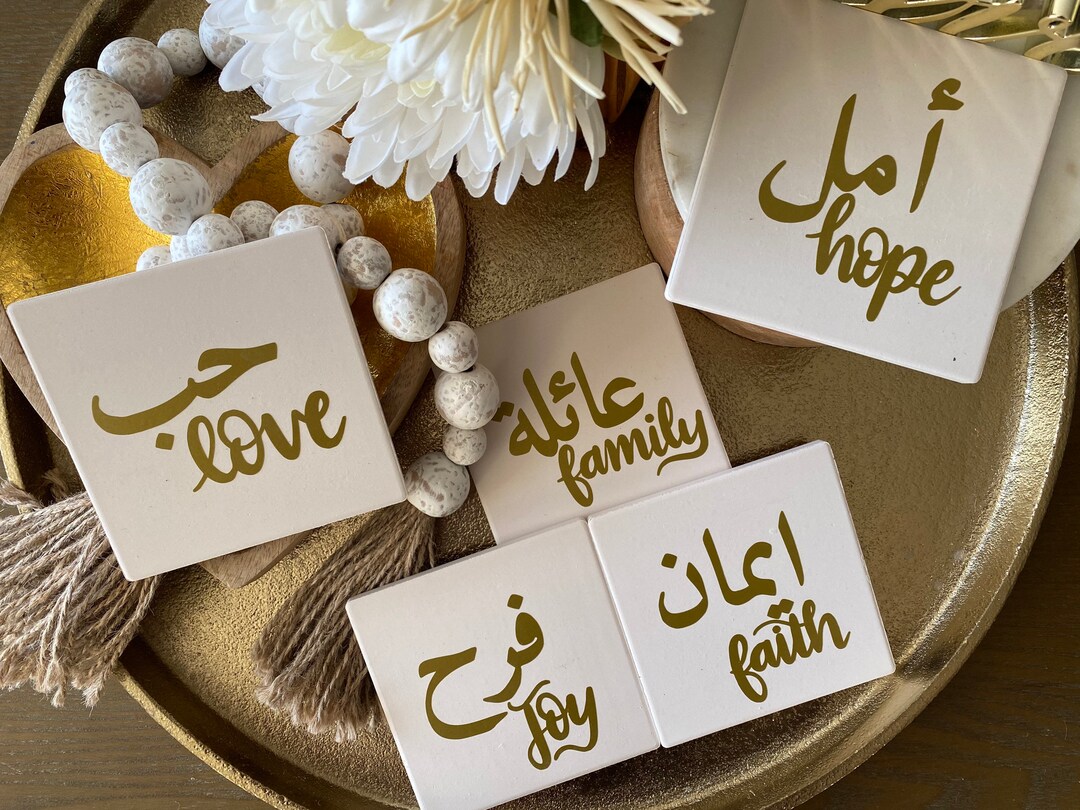 أمل
hope
حب
love
عائلة
family
ايمان
faith
فرح
Joy